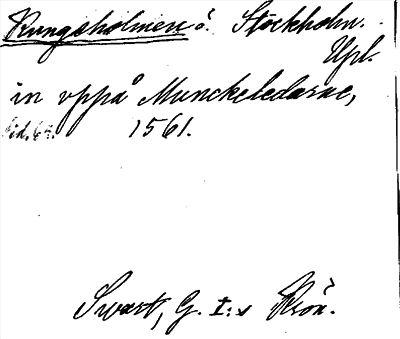 Kungsholmen ö. Stockholm.
Upl.
in vppå Munckeledarne,
sid. 64. 1561.
Swart, G. I:s Krön.